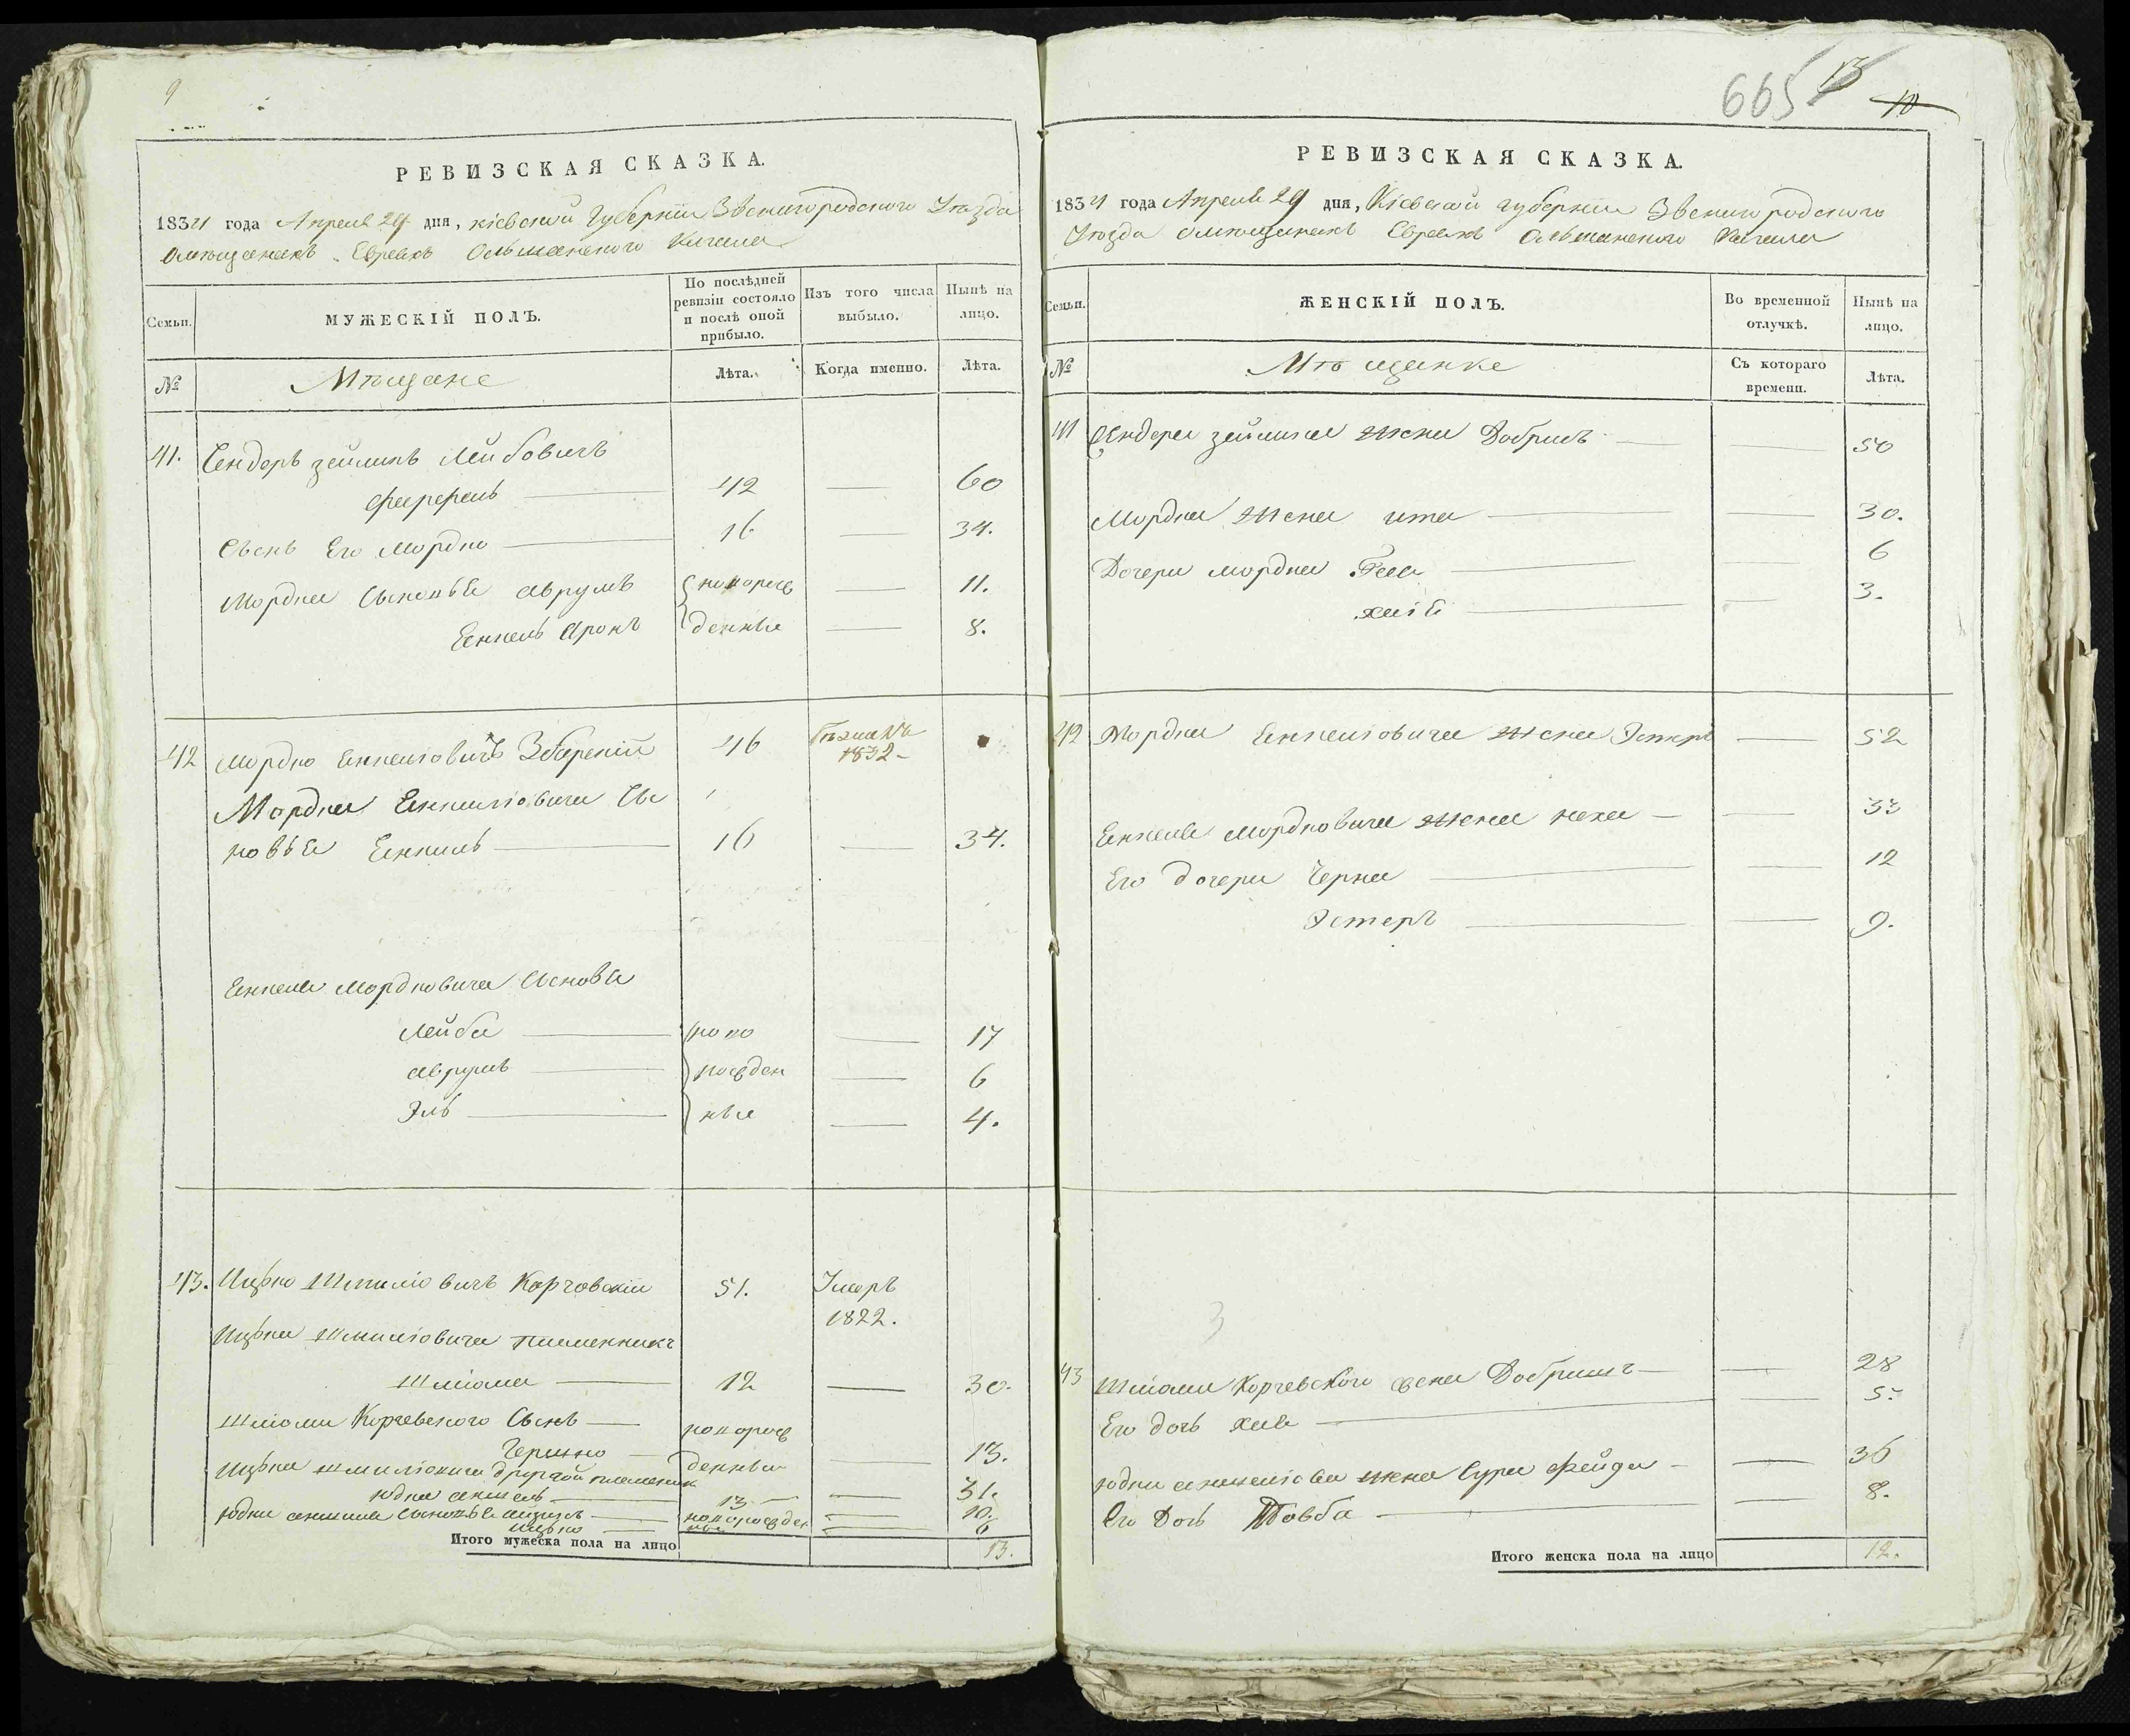 9
РЕВИЗСКАЯ СКАЗКА.
1834 года Апреля 29 дня, кіевской Губерніи Звенигородского Уезда
омѣщанахъ Евреахъ Ольшанского Кагала
Семьи.
МУЖЕСКІЙ ПОЛЪ.
По послѣдней ревизіи состояло и послѣ оной прибыло.
Изъ того числа выбыло.
Нынѣ на лицо.
№
Мѣщане
Лѣта.
Когда именно.
Лѣта.
41. Сендоръ зейликъ Лейбовичъ
42 60
Сынъ Его Мордко 16 34.
Мордка Сыновья Аврумъ новорож 11.
Еннель Аронъ денныя 8.
42 Мордко Еннелиовичъ Збарскій 46
1832
Мордка Еннелиовича Сы
новья Еннель 16 34.
Еннеля Мордковича Сыновья
Лейба ново 17
Аврумъ рожден 6
Эль ныя 4.
43. Ицько Шмиліовичъ Корчовскій 51. Умеръ
1822.
Ицька Шмиліовича племенникъ
Шліома 12 30.
Шліоми Корчевского Сынъ новорож
денны 13.
Ицька Шмиліовича другой племеник
13 31.
новорожден 10.
Ицько ные 6
Итого мужеска пола на лицо 13.
665 13
10
РЕВИЗСКАЯ СКАЗКА.
1834 года Апреля 29 дня, Кіевской губерніи Звенигородского
Уезда омѣщанахъ Евреахъ Ольшанского Кагала
Семьи.
ЖЕНСКІЙ ПОЛЪ.
Во временной отлучкѣ.
Нынѣ на лицо.
№
Мѣщанке
Съ котораго времени.
Лѣта.
41 Сендера зейлика жена Добришъ 50
Мордка жена ита 30.
Дочери мордка 6
хаія 3.
42 Мордка Еннелиовича жена Эстеръ 52
Еннеля Мордковича жена неха 33
Его дочери Черна 12
Эстеръ 9.
3
43 Шліоми Корчевского жена Добришъ 28
Его дочь хая 5.
жена Сура Фейга 36
Его Дочь Товба 8.
Итого женска пола на лицо 12.